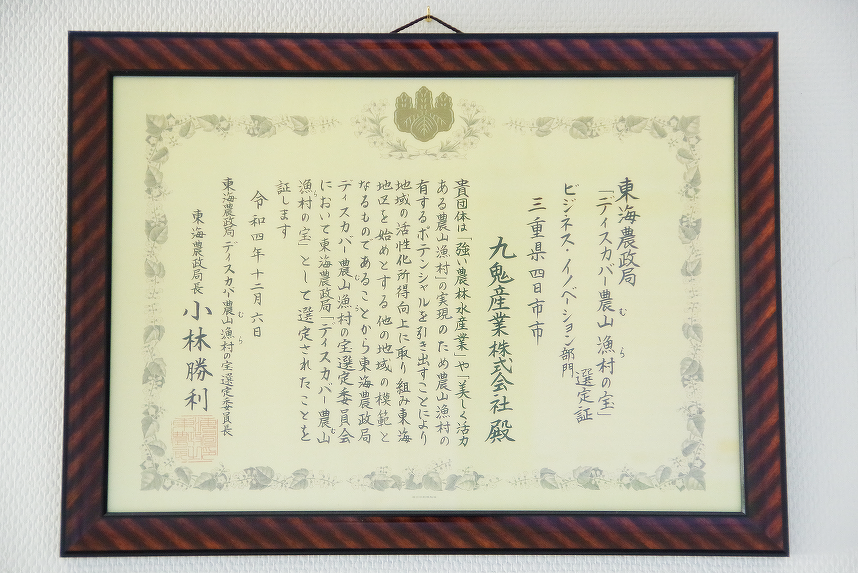 東海農政局
「ディスカバー農山漁村の宝」
むら
選定証
ビジネス・イノベーション部門
三重県四日市市
九鬼産業株式会社 殿
貴団体は「強い農林水産業」や「美しく活力
ある農山漁村」の実現のため農山漁村の
有するポテンシャルを引き出すことにより
地域の活性化所得向上に取り組み東海
地区を始めとする他の地域の模範と
なるものであることから東海農政局
ディスカバー農山漁村の宝選定委員会
むら
において東海農政局「ディスカバー農山
漁村の宝」として選定されたことを
むら
証します
令和四年十二月六日
東海農政局ディスカバー農山漁村の宝選定委員長
むら
東海農政局長 小林勝利